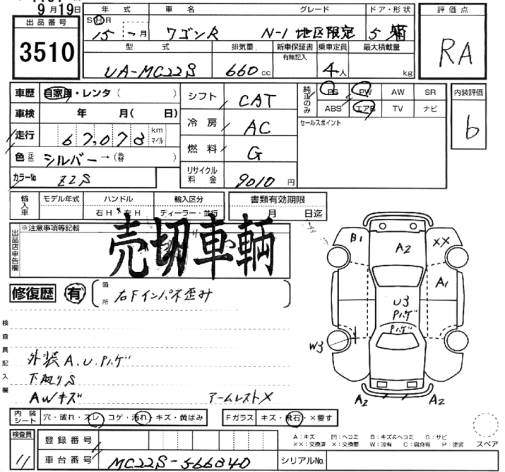 9月19日
出品番号
3510
年式 車名 グレード ドア・形状
15 - 月 ワゴンR N-1 地区限定 5 箱
評価点
RA
型式 排気量 新車保証書 乗車定員 最大積載量
有無記入
UA-MC22S 660 cc 4人 kg
車歴 自家用・レンタ( )
車検 年 月( )
走行 67,078 km マイル
色 シルバー→( )
カラーNo ZZS
シフト CAT
冷房 AC
燃料 G
リサイクル料金 9010 円
純正のみ PS PW AW SR
ABS エアB TV ナビ
セールスポイント
内装評価
6
輸入車 モデル年式 ハンドル 輸入区分
右H 左H ディーラー・並行
書類有効期限
月 日迄
※注意事項等記載
売切車輌
修復歴 有 箇所 右Fインパネ歪み
検査員記入欄
外装A.U.Pハゲ
下廻りS
AWキズ アームレストX
B1 A2 XX
A1
U3
Pハゲ
Pハゲ
W3
A2 A2
内装シート 穴・破れ・スレ コゲ・汚れ キズ・黄ばみ
Fガラス キズ・飛石・×要す
スペア
検査員
11
登録番号
車台番号 MC22S-566840
シリアルNo.